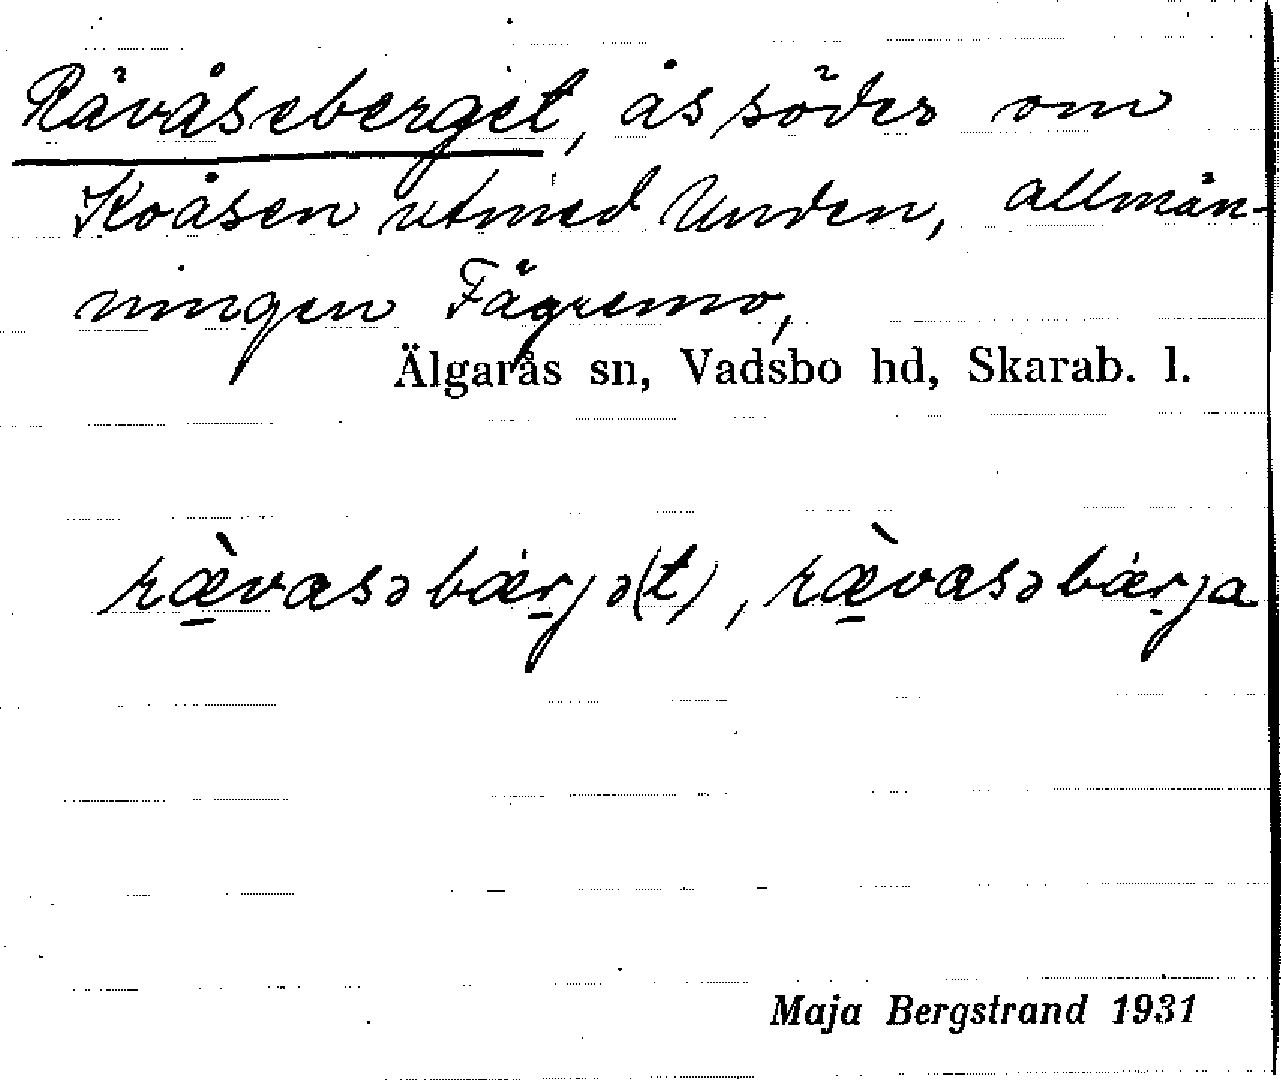 Rävåseberget, ås söder om
Koåsen utmed Unden, allmän-
ningen Fägremo,
Älgarås sn, Vadsbo hd, Skarab. l.
ræ̀vasəbærjə(t), ræ̀vasəbærja
Maja Bergstrand 1931